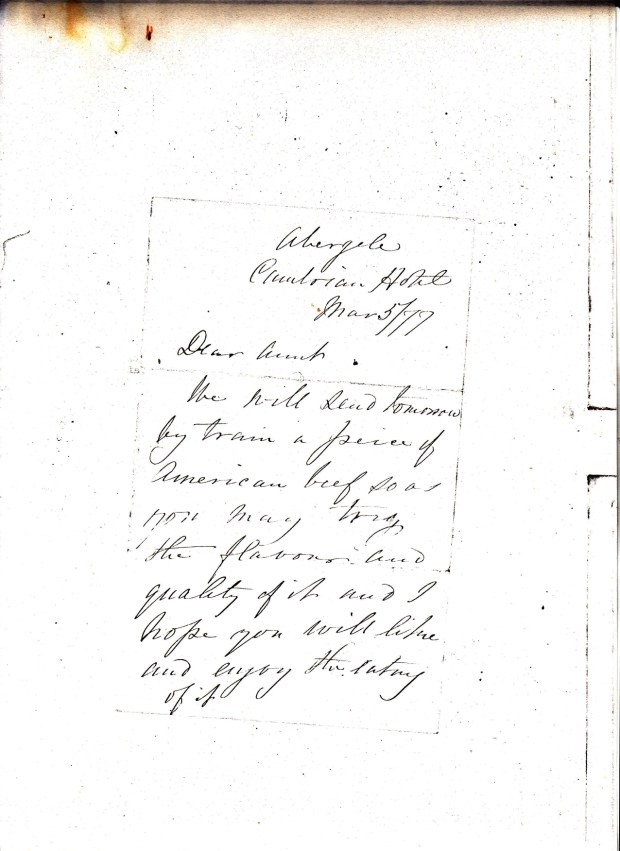 Abergele
Cambrian Hotel
Mar 5/77
Dear Aunt
We will send tomorrow
by train a peice of
American beef so as
you may try
the flavour and
quality of it and I
hope you will like
and enjoy the eating
of it